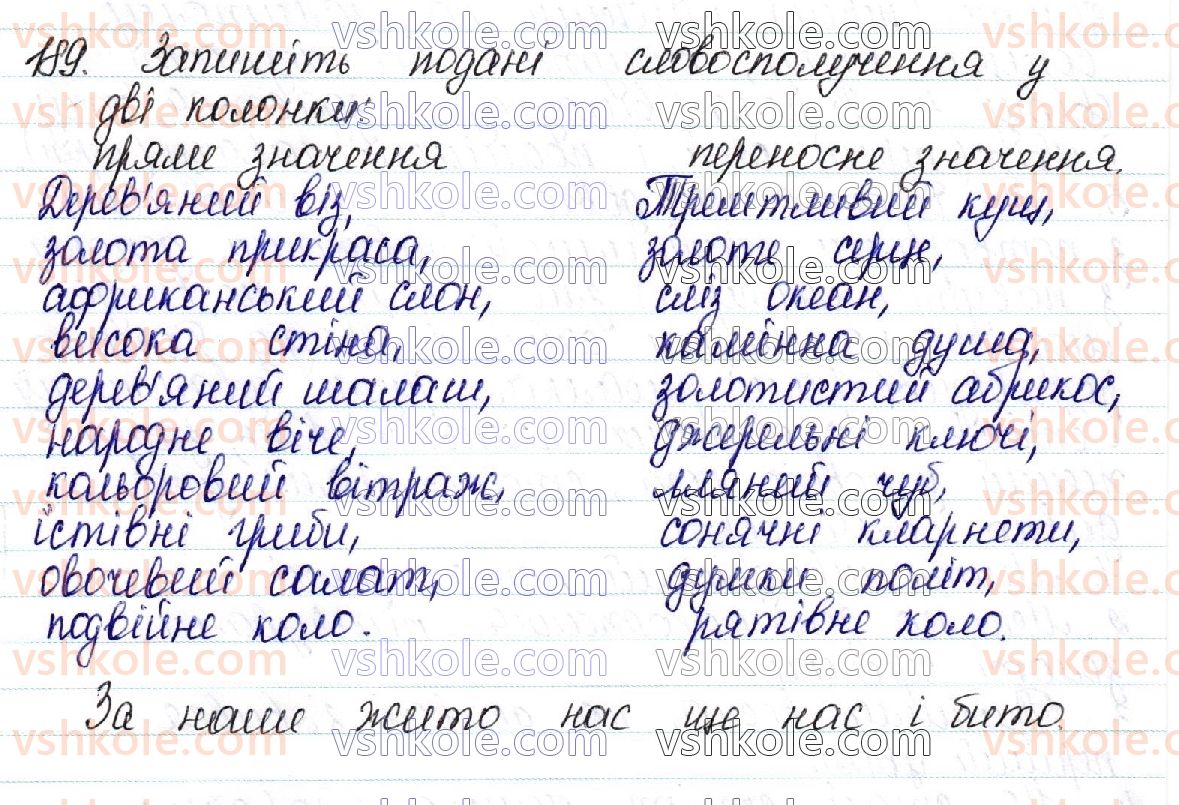 189. Запишіть подані словосполучення у
дві колонки:
пряме значення переносне значення.
Дерев'яний віз, Тремтливий кущ,
золота прикраса, золоте серце,
африканський слон, сліз океан,
висока стіна, камінна душа,
дерев'яний шалаш, золотистий абрикос,
народне віче, джерельні ключі,
кольоровий вітраж, лляний чуб,
їстівні гриби, сонячні кларнети,
овочевий салат, думки політ,
подвійне коло. рятівне коло.
За наше жито нас ще нас і бито.